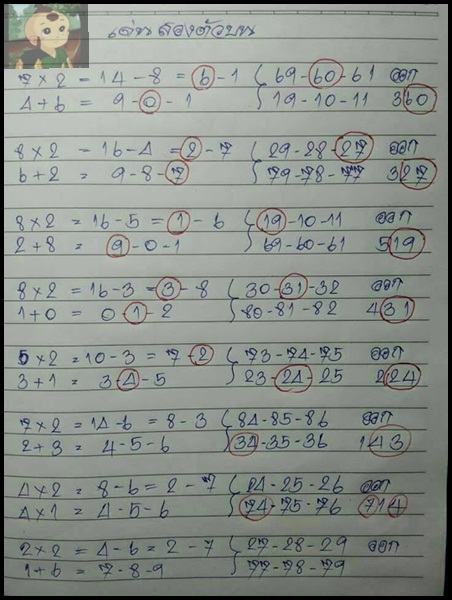 เด่นสองตัวบน
7×2 = 14-8 = 6-1 { 69-60-61 ออก
4+6 = 9-0-1 19-10-11 360
8×2 = 16-4 = 2-7 { 29-28-27 ออก
6+2 = 9-8-7 79-78-77 327
8×2 = 16-5 = 1-6 { 19-10-11 ออก
2+8 = 9-0-1 69-60-61 519
8×2 = 16-3 = 3-8 { 30-31-32 ออก
1+0 = 0-1-2 80-81-82 431
5×2 = 10-3 = 7-2 { 73-74-75 ออก
3+1 = 3-4-5 23-24-25 224
7×2 = 14-6 = 8-3 { 84-85-86 ออก
2+3 = 4-5-6 34-35-36 143
4×2 = 8-6 = 2-7 { 24-25-26 ออก
4×1 = 4-5-6 74-75-76 714
2×2 = 4-6 = 2-7 { 27-28-29 ออก
1+6 = 7-8-9 77-78-79